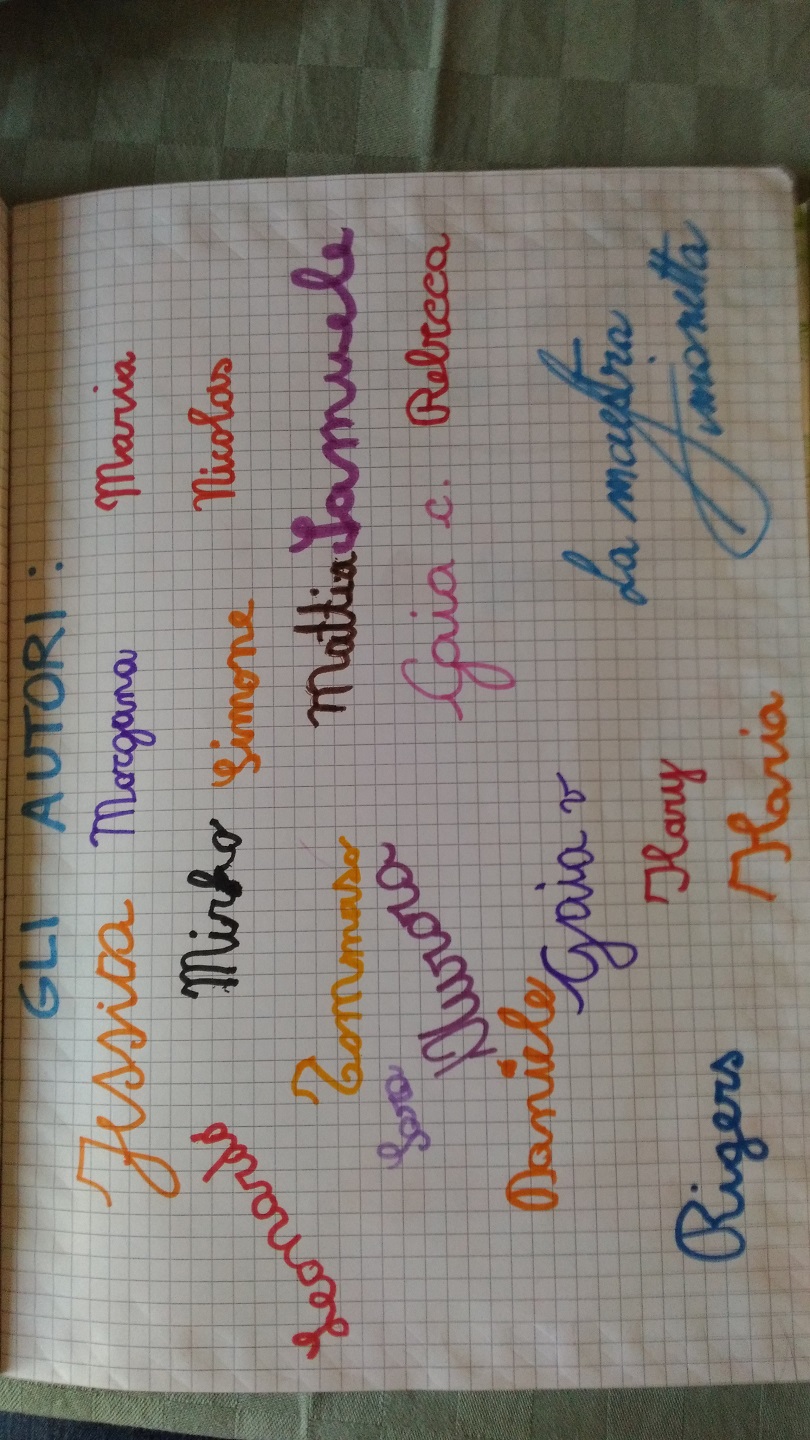 GLI AUTORI:
Jessica Morgana Maria
Mirko Simone Nicolas
Leonardo Tommaso Mattia Samuele
Sara Aurora Gaia c. Rebecca
Daniele Gaia v
La maestra
Simonetta
Rigers Ilary
Ilaria